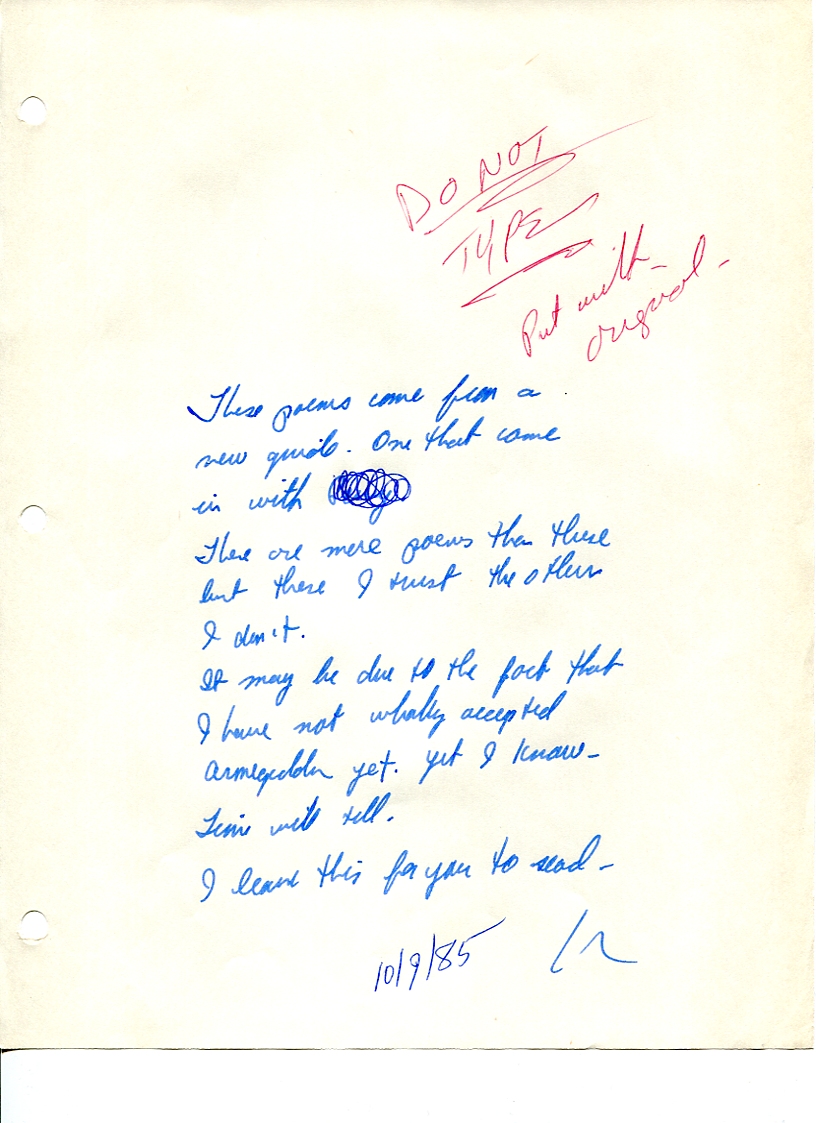 DO NOT
TYPE
Put with -
original -
These poems come from a
new guide. One that came
in with
There are more poems then these
but these I trust the others
I don't.
It may be due to the fact that
I have not wholly accepted
Armegeddon yet. yet I know -
Time will tell.
I leave this for you to read -
10/9/85